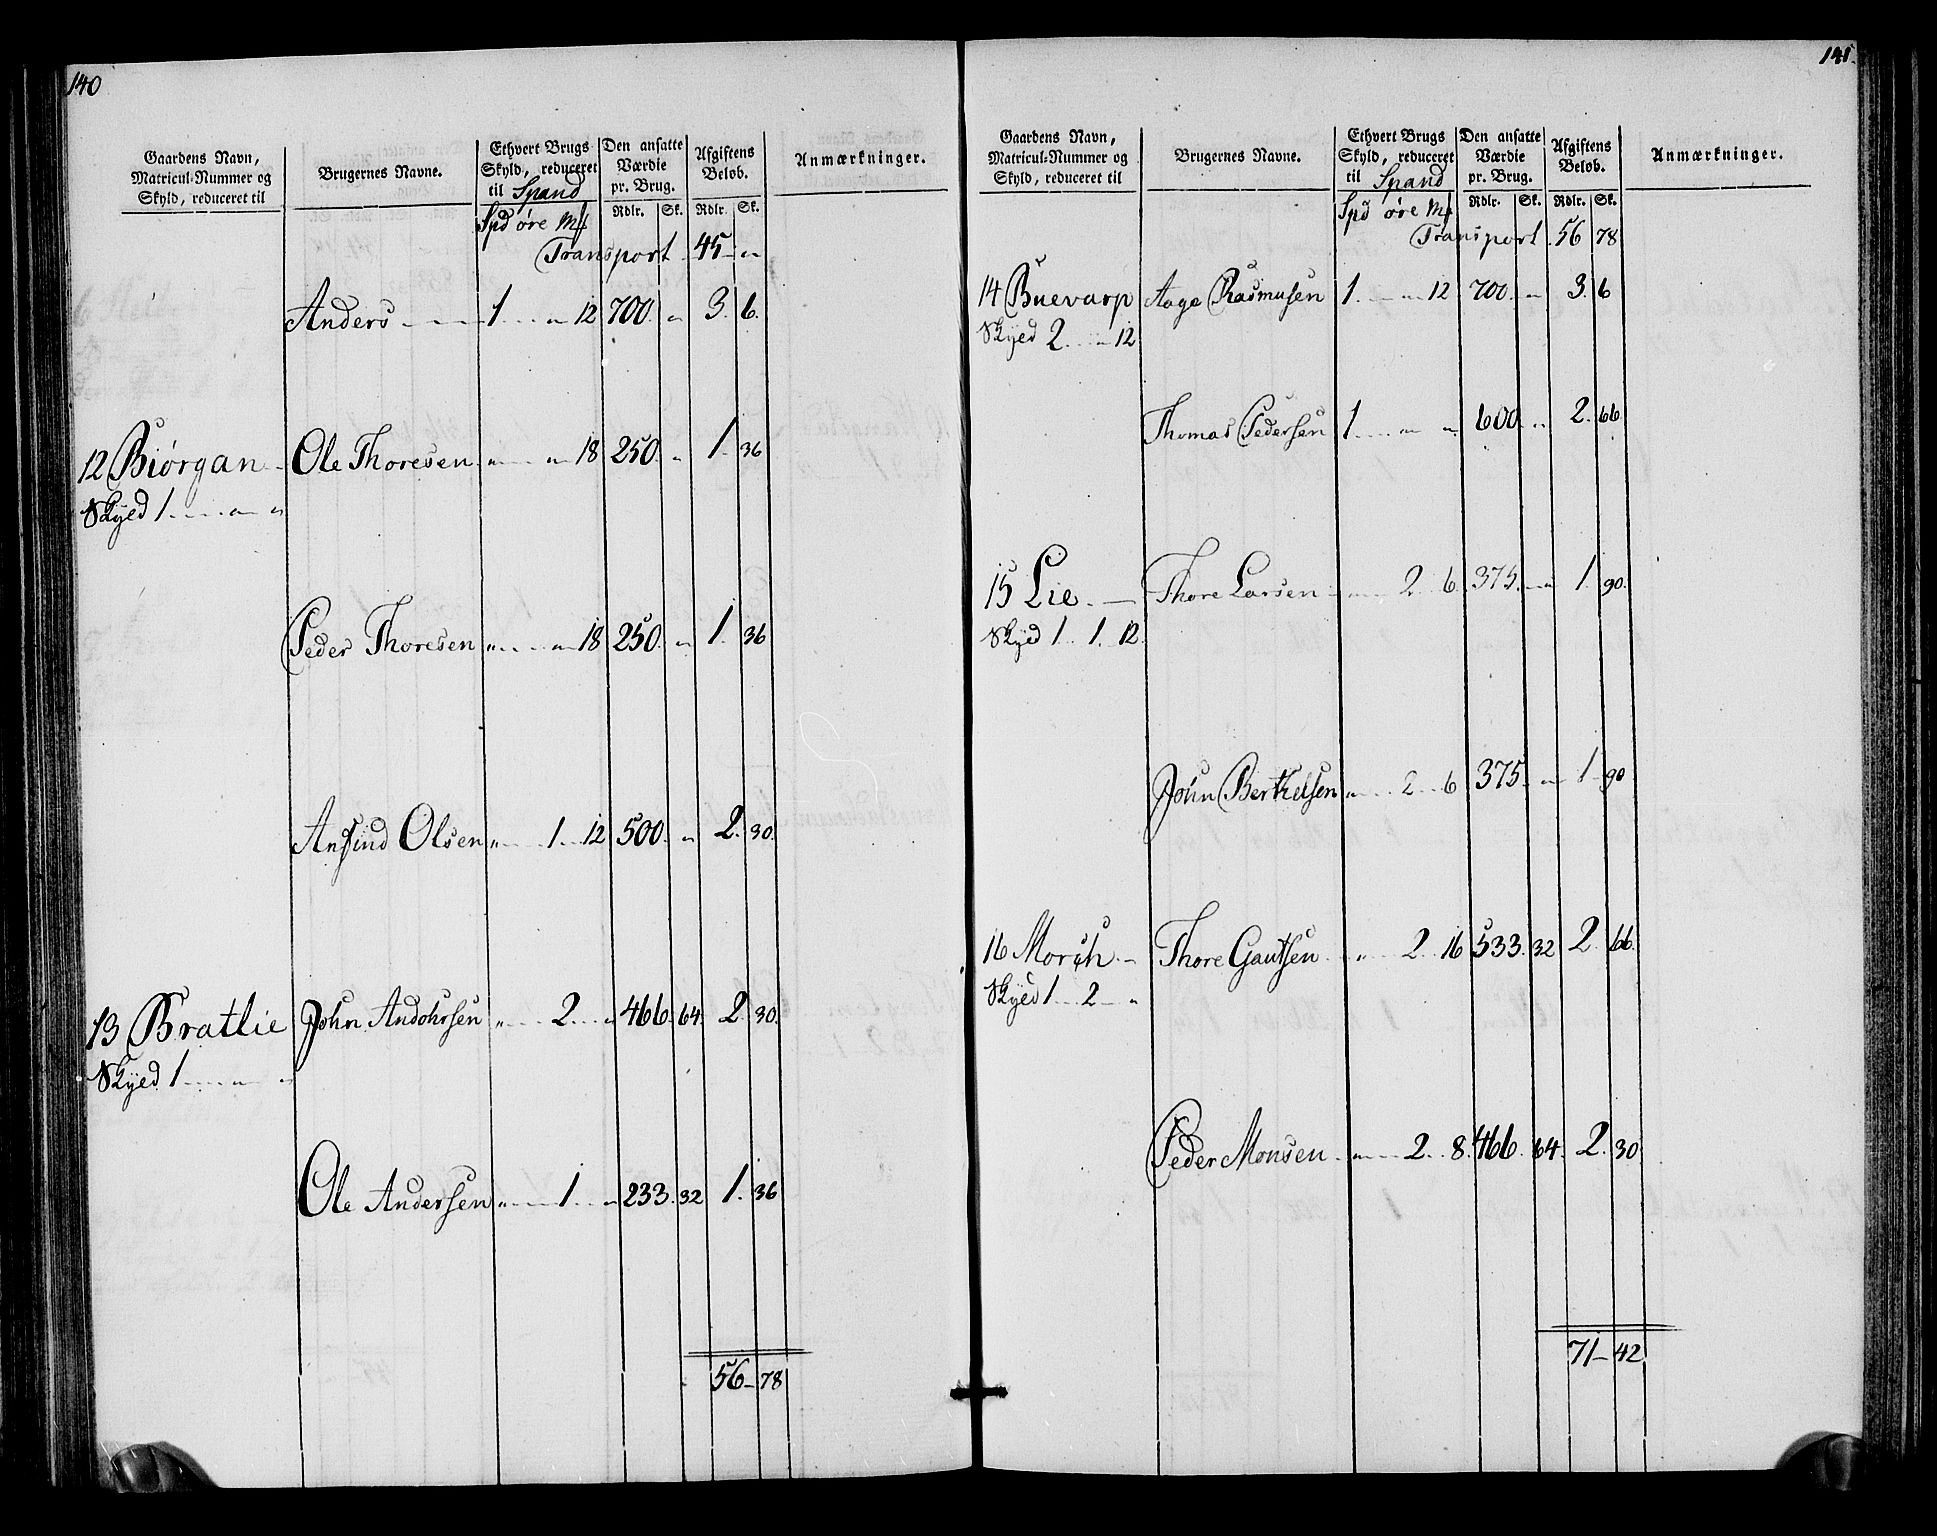 140
Gaardens Navn, Matricul-Nummer og Skyld, reduceret til
Brugernes Navne.
Ethvert Brugs Skyld, reduceret til Spand
Den ansatte Værdie pr. Brug.
Afgiftens Beløb.
Anmærkninger.
Spd øre Mk Rdlr. Sk. Rdlr. Sk.
Transport 45 — "
Anders — 1 .... " 12 700. " 3. 6.
12 Biørgan Ole Thoresen " ... " 18 250. " 1. 36
Skyed 1 .... " "
Peder Thoresen " ... " 18 250. " 1. 36
Ansind Olsen " ... 1 ... 12 500. " 2. 30.
13 Bratlie John Andohrsen " ... 2 ... " 466. 64. 2. 30.
Skyed 1 .... " "
Ole Andersen " ... 1 ... " 233. 32 1. 36
56 — 78
141.
Gaardens Navn, Matricul-Nummer og Skyld, reduceret til
Brugernes Navne.
Ethvert Brugs Skyld, reduceret til Spand
Den ansatte Værdie pr. Brug.
Afgiftens Beløb.
Anmærkninger.
Spd øre Mk Rdlr. Sk. Rdlr. Sk.
Transport 56 78
14 Buevarp Aage Rasmusen 1 .... " 12 700. " 3. 6
Skyed 2 ... " 12
Thomas Pedersen 1 .... " " 600. " 2. 66
15 Lie — Thore Larsen " ... 2. 6. 375. " 1. 90.
Skyd 1 .. 1 .. 12.
John Berthelsen " ... 2 .. 6 375. " 1 90
16 Morsch — Thore Gautsen " .. 2 .. 16 533. 32 2. 66.
Skyed 1 ... 2 — "
Peder Monsen " ... 2 .. 8. 466. 64. 2. 30
71 — 42